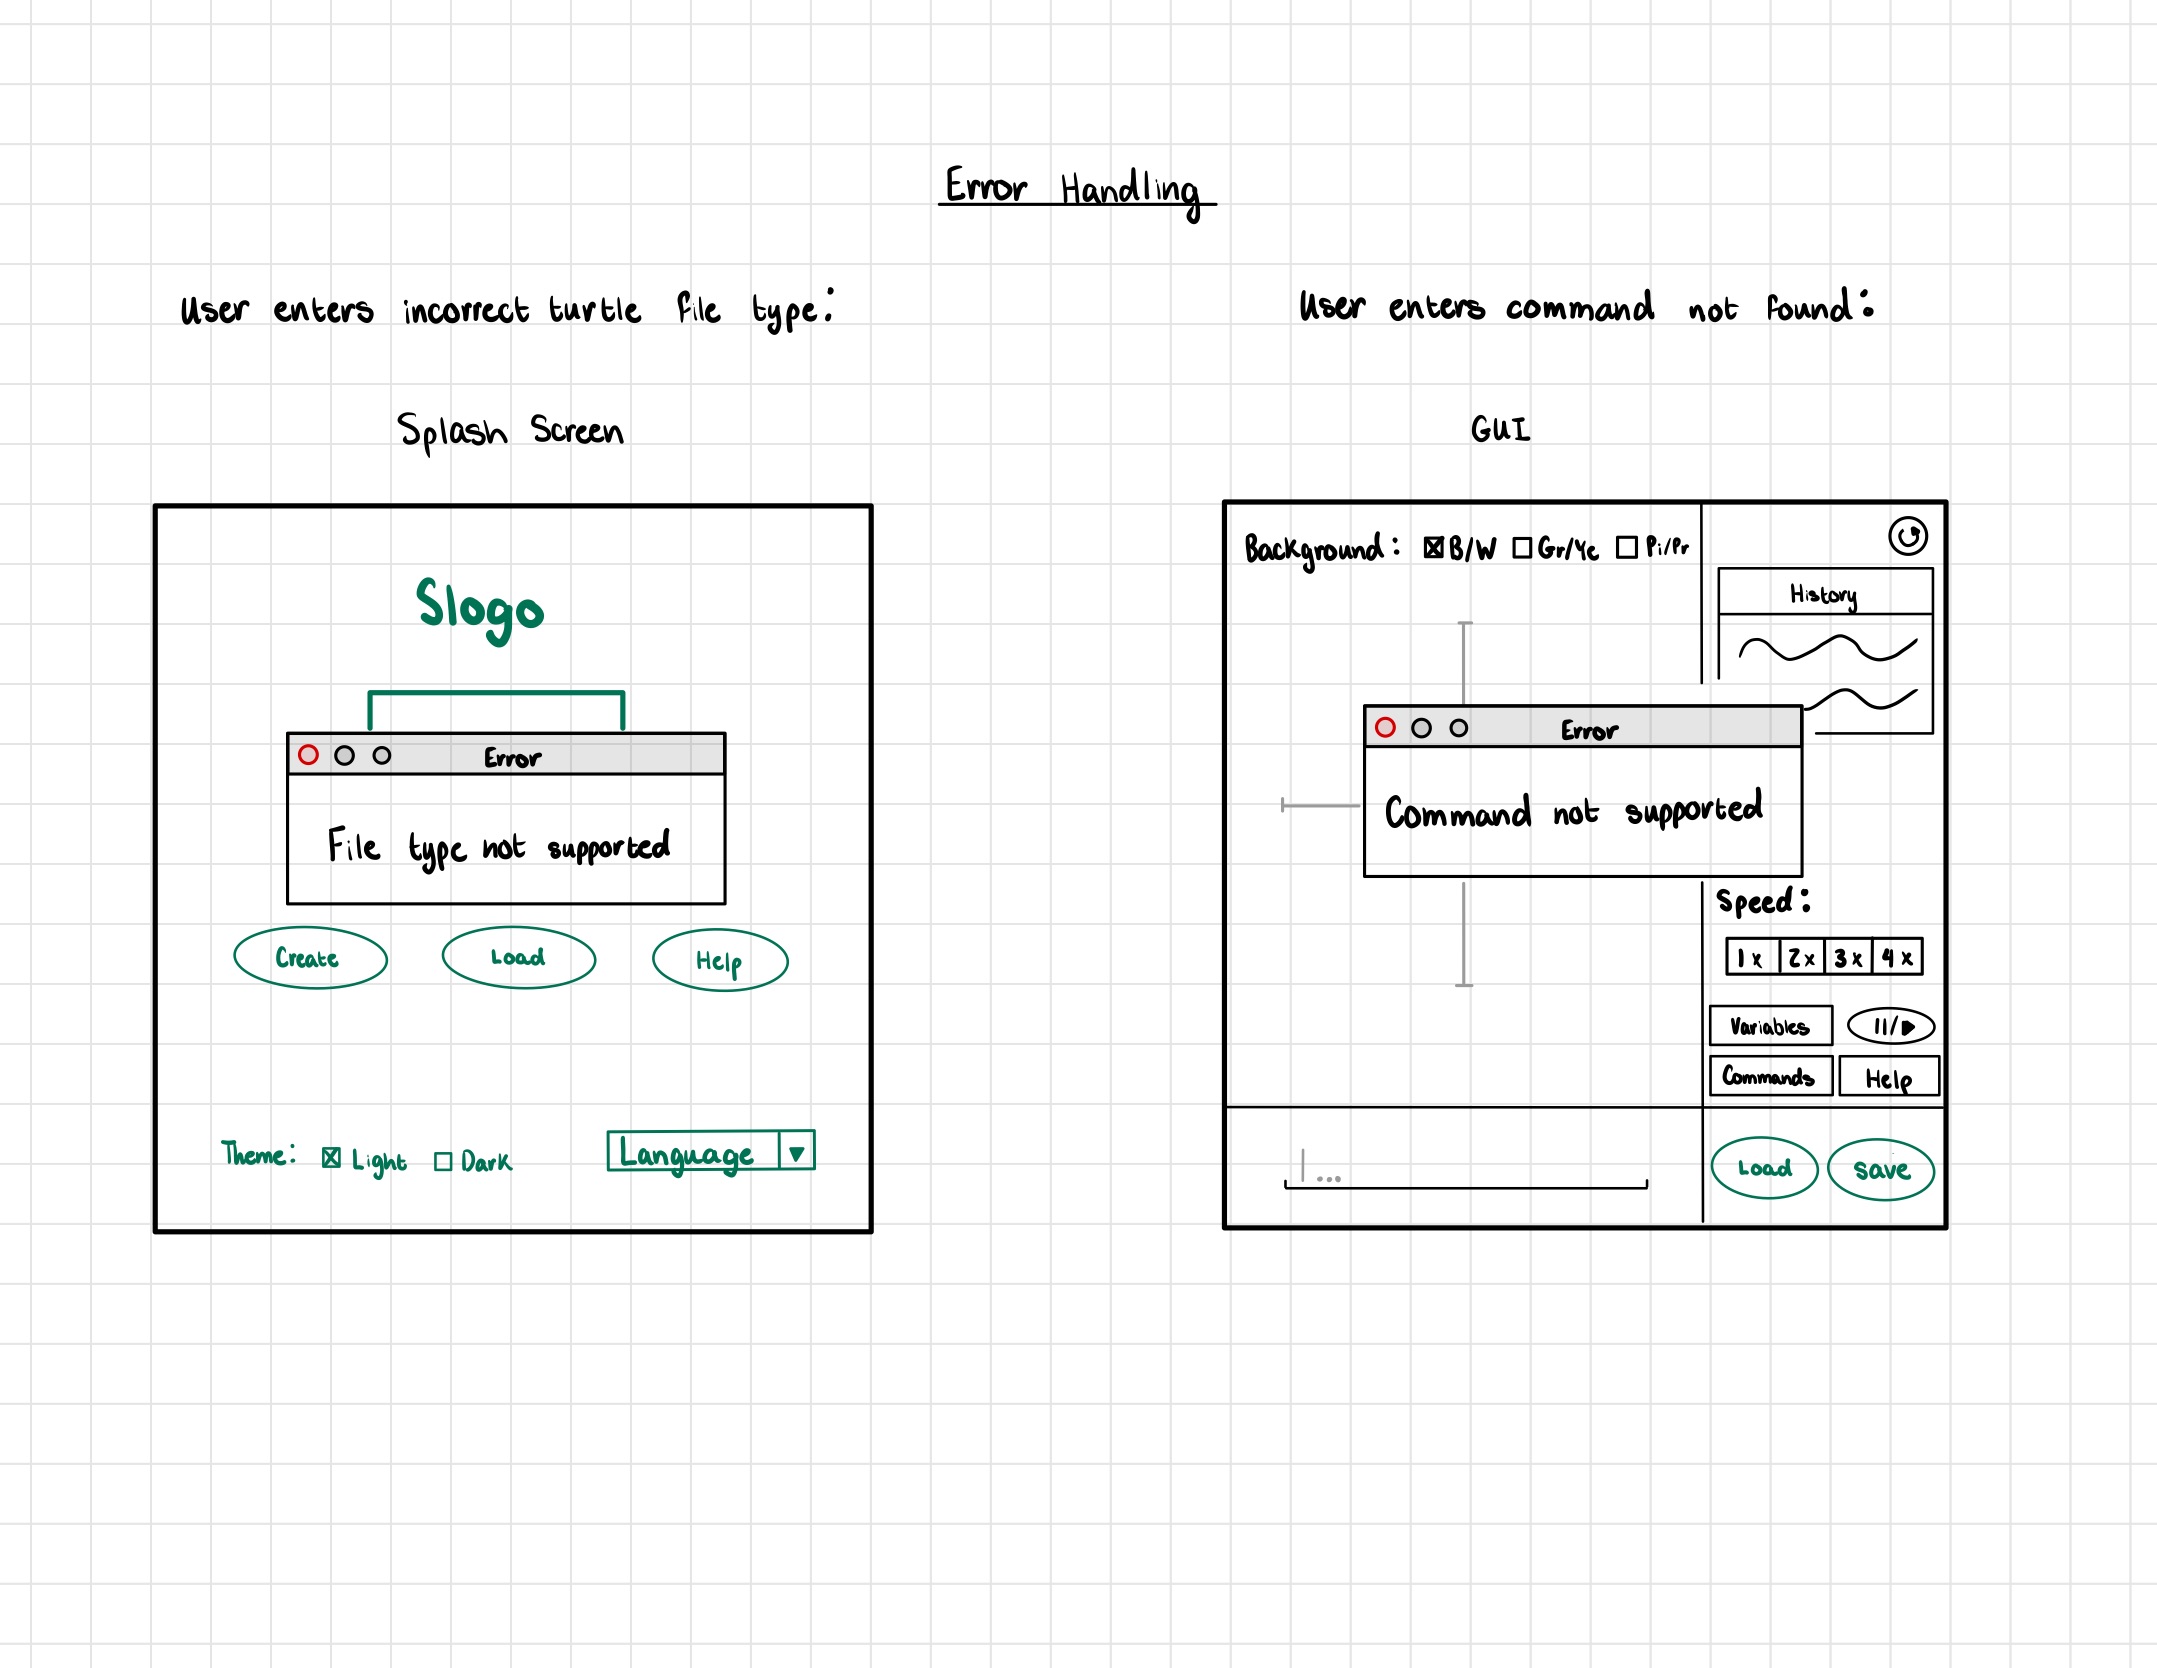 Error Handling
User enters incorrect turtle file type:
Splash Screen
Slogo
Error
File type not supported
Create Load Help
Theme: Light Dark Language
User enters command not found:
GUI
Background: B/W Gr/Ye Pi/Pr
History
Error
Command not supported
Speed:
1x 2x 3x 4x
Variables
Commands Help
...
Load Save